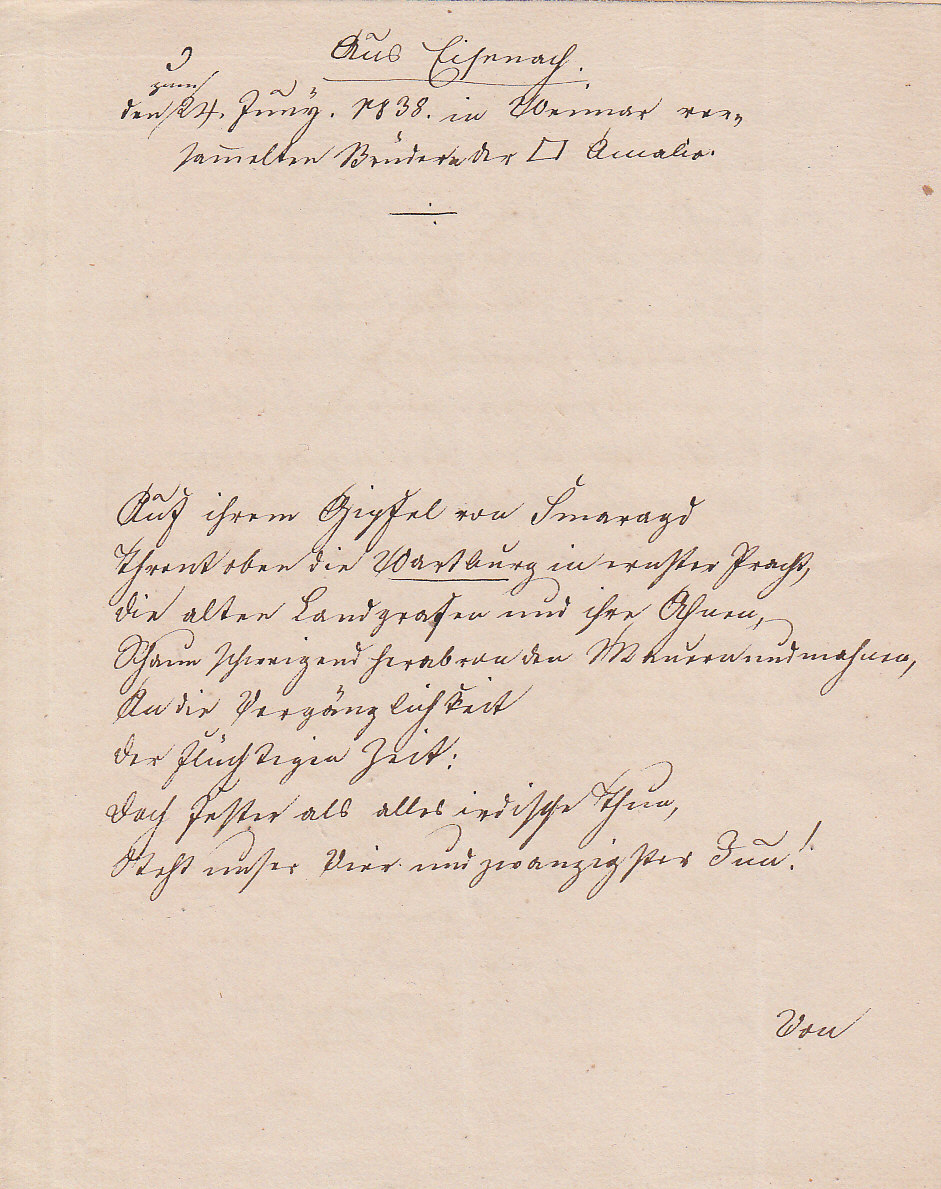 Aus Eisenach.
zum
den 24. Juny. 1838. in Weimar ver-
sammelten Brüdern der □ Amalia.
Auf ihrem Gipfel von Smaragd
Thront oben die Wartburg in ernster Pracht,
die alten Landgrafen und ihre Ahnen,
Schaun schweigend herab von den Mauern und mahnen,
An die Vergänglichkeit
der flüchtigen Zeit:
doch fester als alles irdische Thun,
Steht unser Vier und zwanzigster Jun!
Von